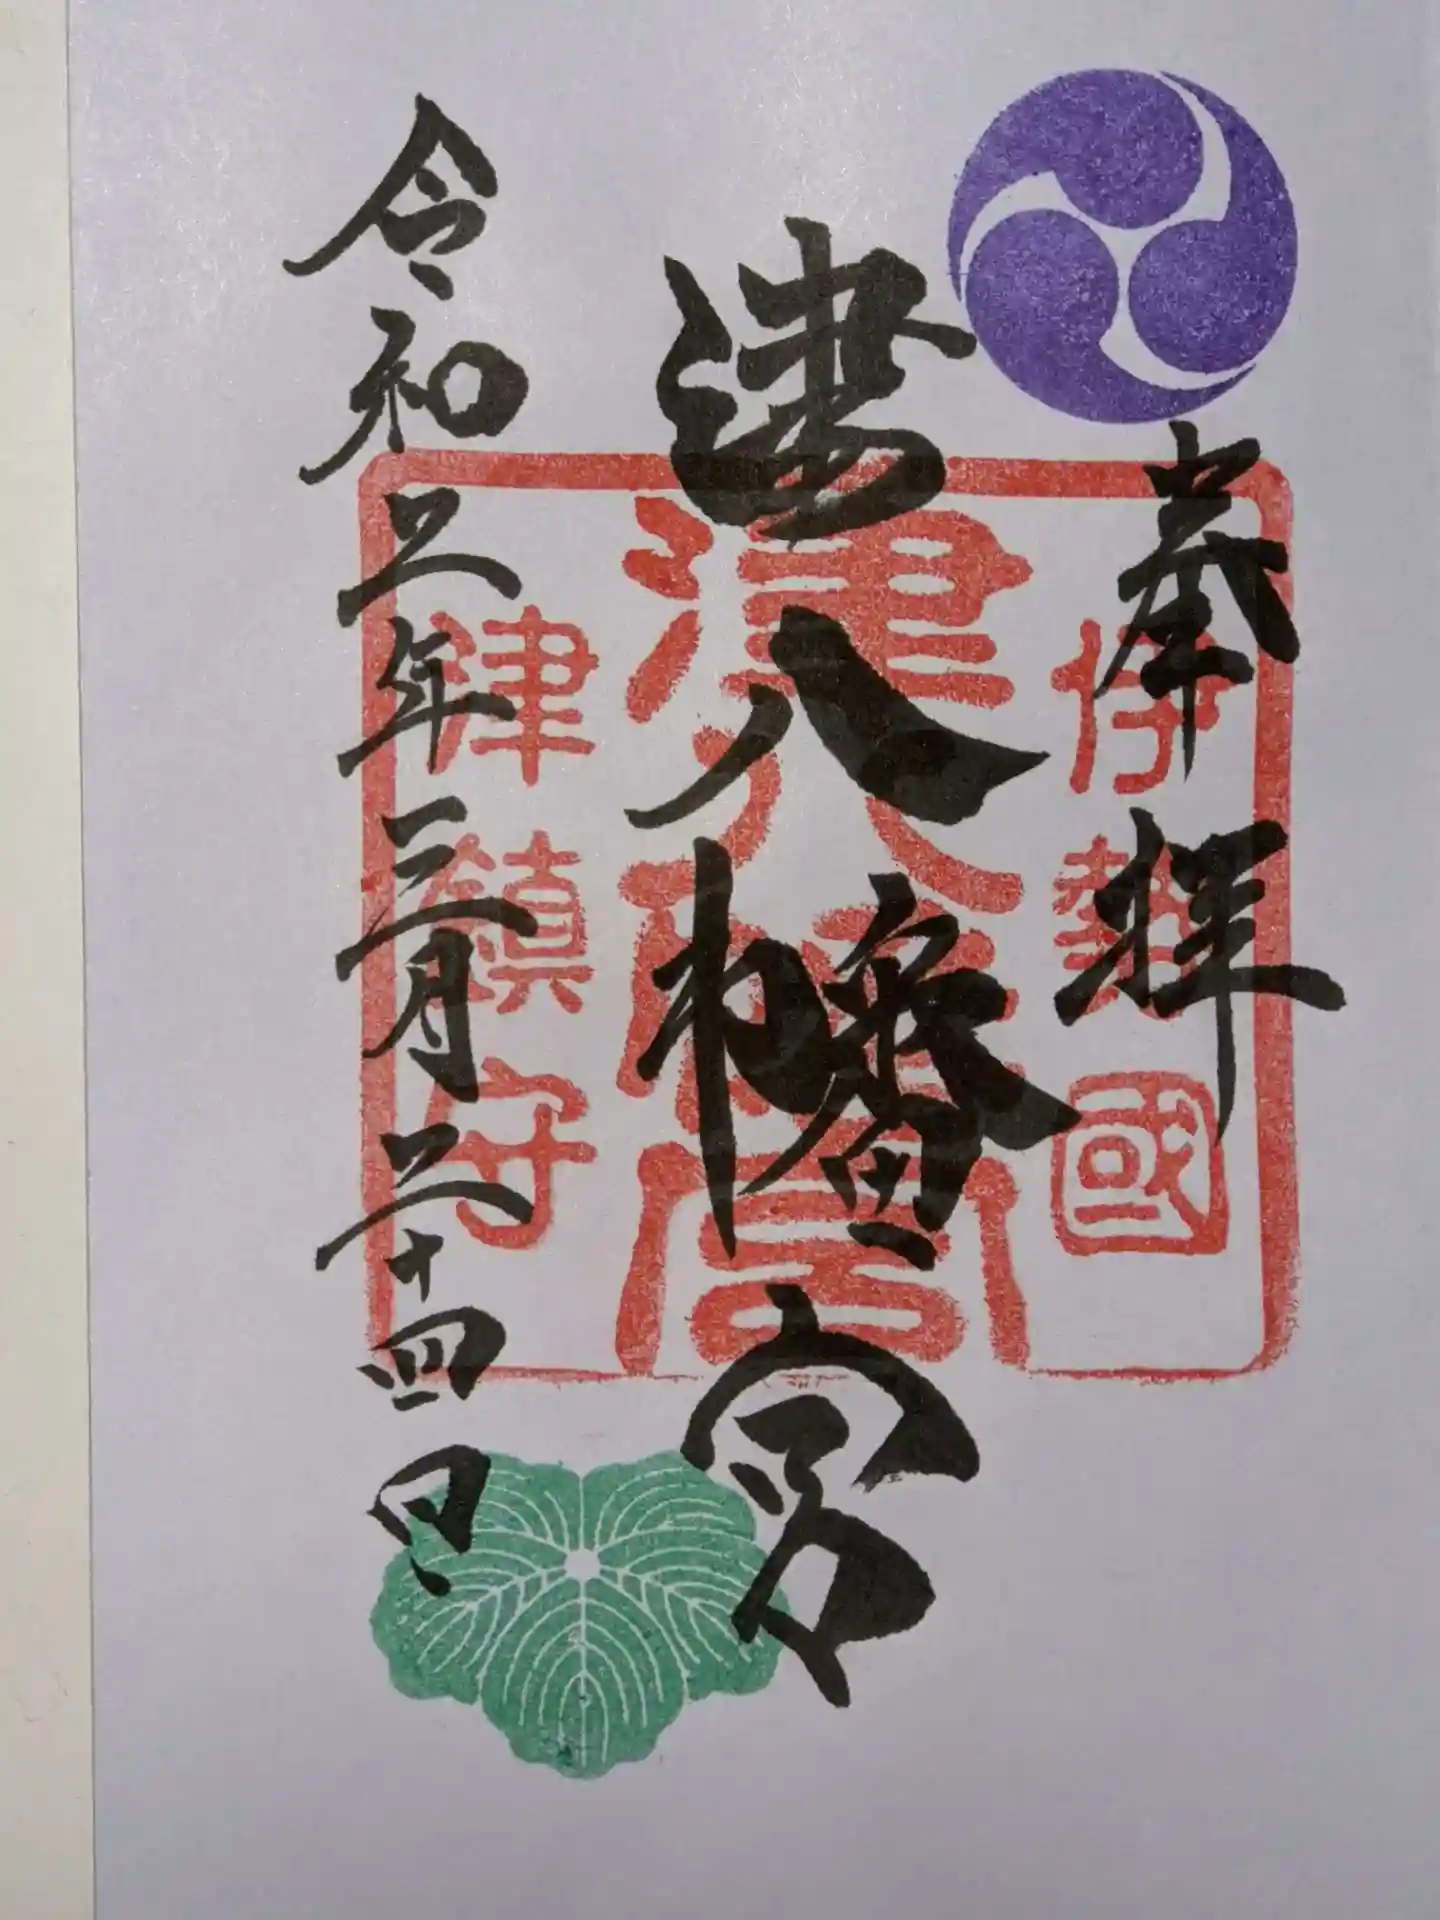 奉拝
伊勢國
津八幡宮
津八幡宮
津鎮守
令和二年三月二十四日